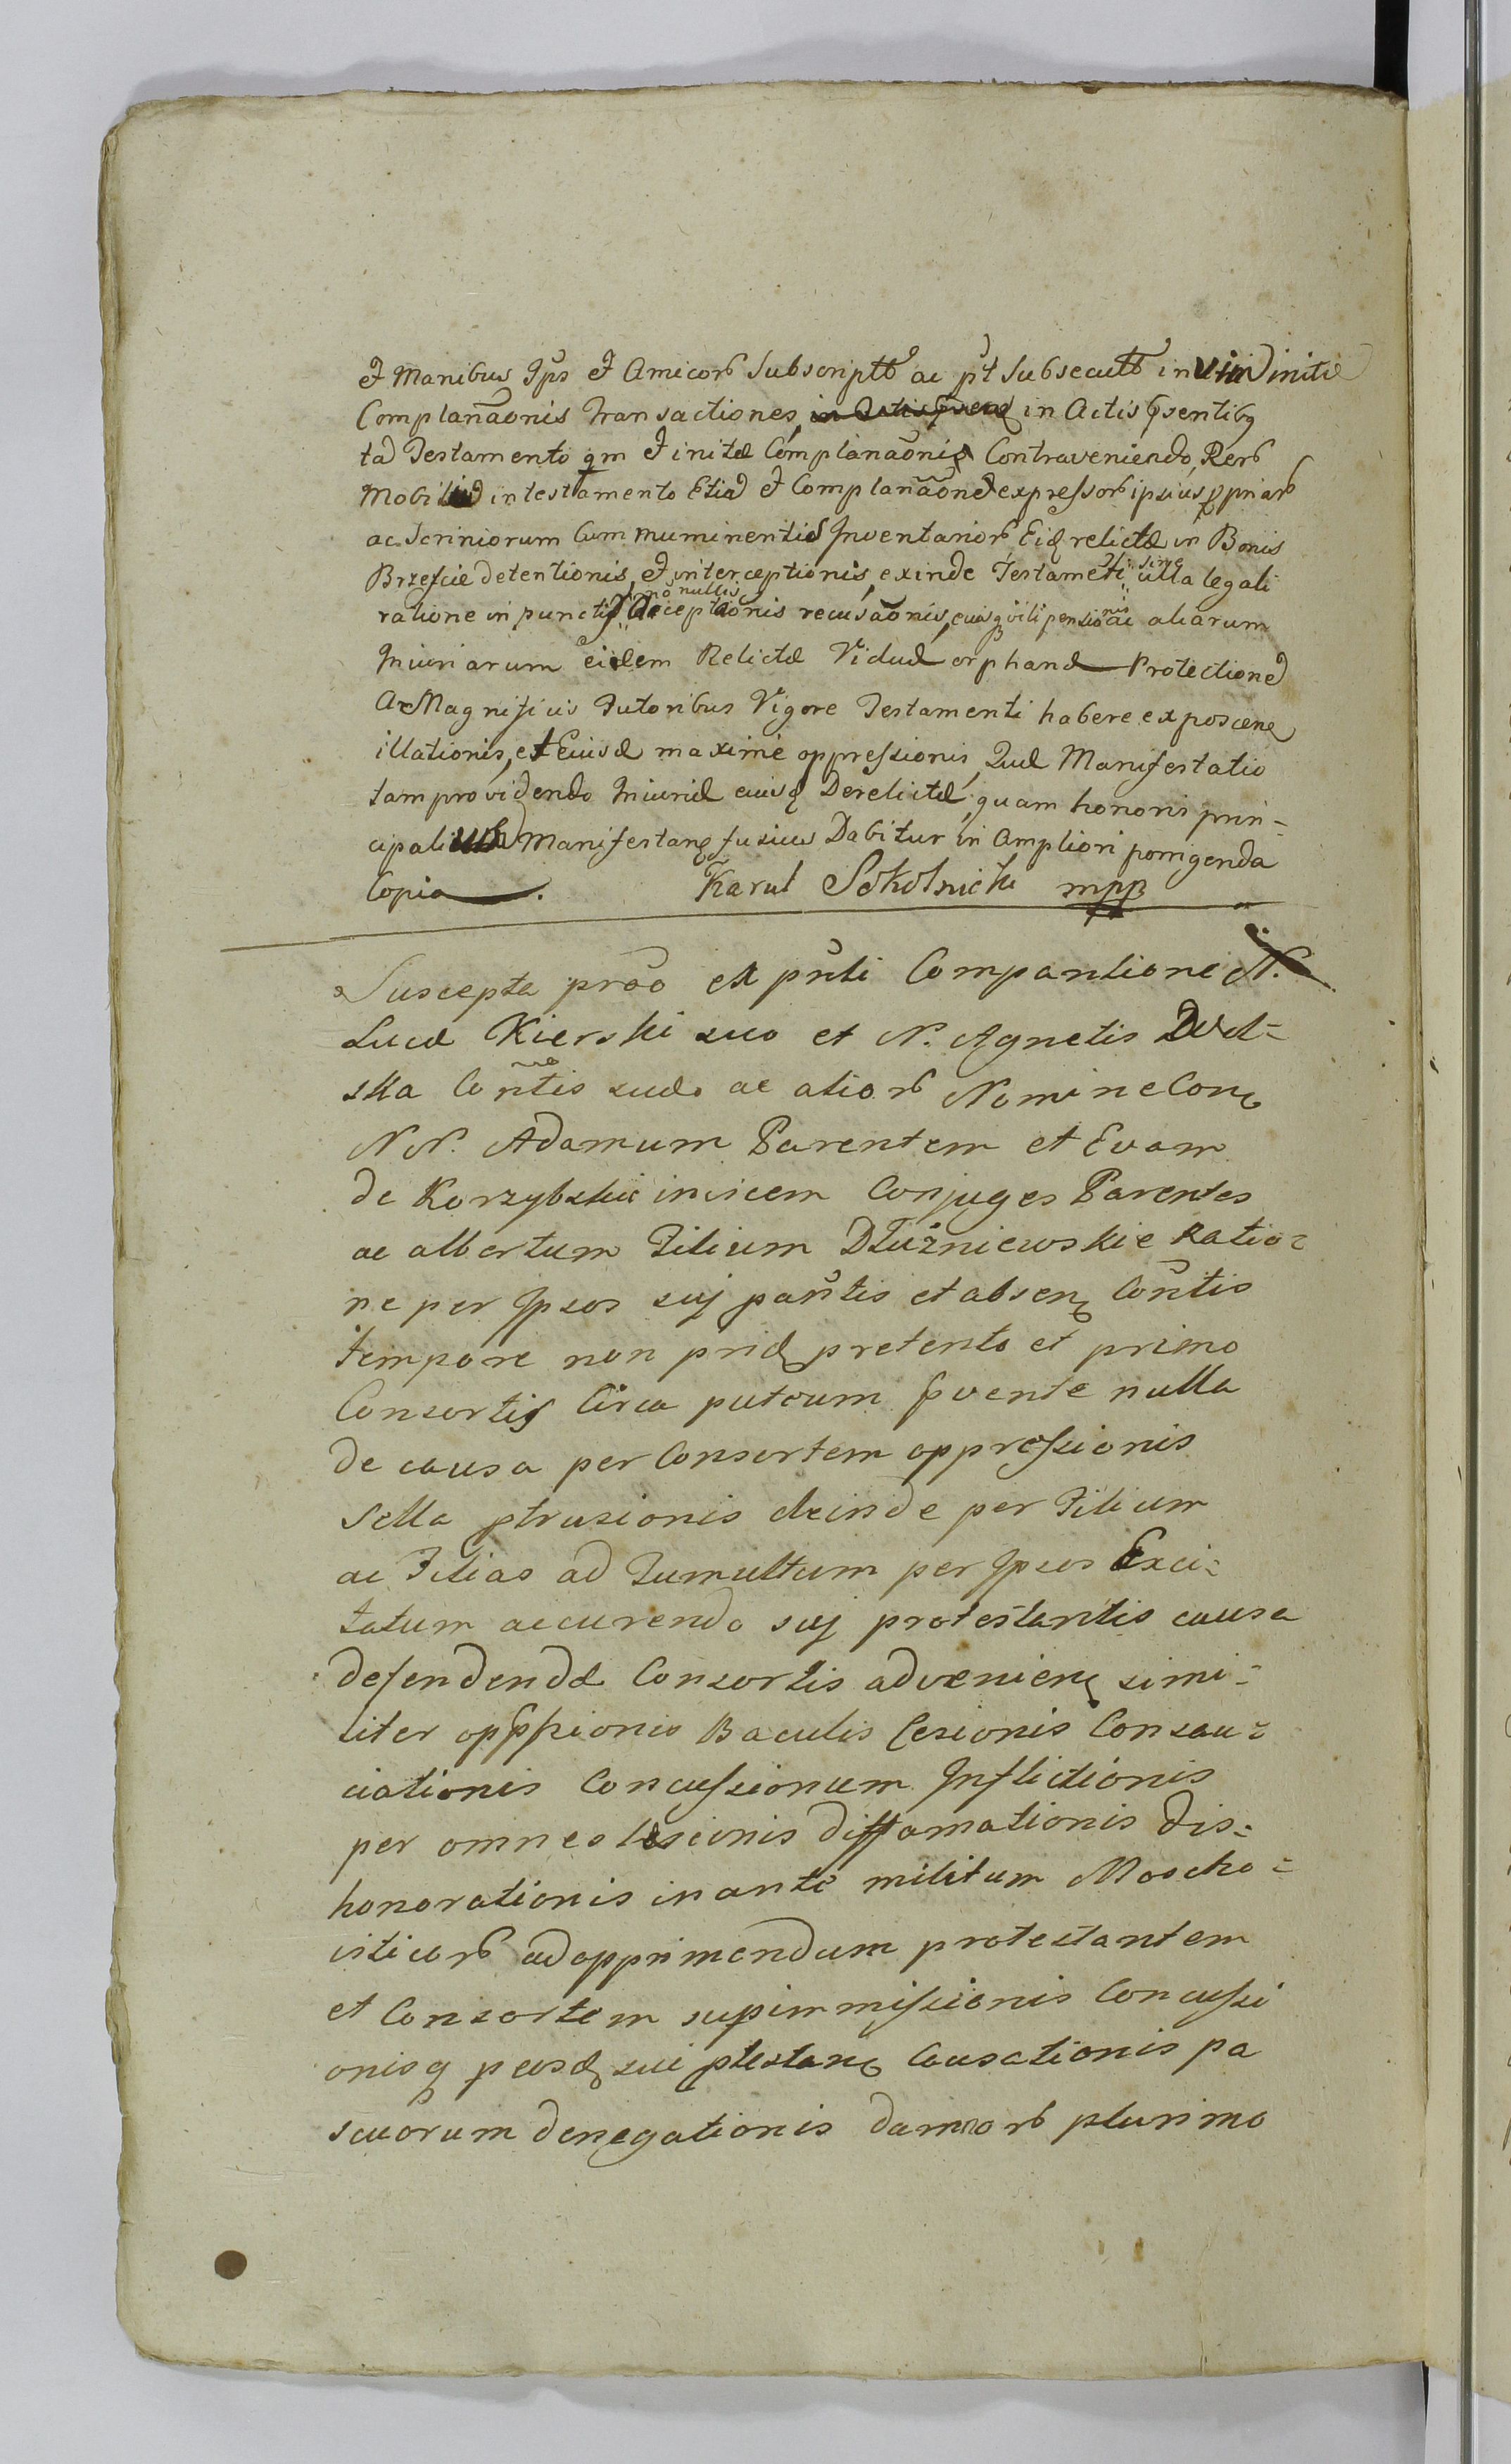 et Manibus Ips et Amicorb Subscriptb ac pt Subsecutb in vim initæ
Complanãonis Transactiones, in Actis psentibq
tã Testamento qm et initæ Complanãonis Contraveniendo, Rerb
Mobiliũ in testamento Etiã et Complanãone expressorb ipsius ppriarb
ac Scriniorum Cum muninentis Inventariorb Eiq relictæ in Bonis
Brzescie detentionis, et interceptionis, exinde Testameti sine ulla legali
ratione in punctis nonullis acceptãonis recusãonis, vilipensionis ac aliarum
Iniuriarum eidem Relictæ Viduæ orphanæ Protectionẽ
A Magnificis Tutoribus Vigore Testamenti habere exposcenq
illationis, et Eiusd maxime oppressionis, Quæ Manifestatio
tam providendo Iniuriæ eiusq Derelictæ, quam honoris prin=
cipalium Manifestanq fusius Dabitur in Ampliori porrigenda
Copia.
Karol Sokolnicki mpp
Suscepta prõo ex pñti Comparitione N.
Lucæ Kierski suo et N. Agnetis
ska Coñtis suæ ac aliorb Nomine Conq
N N. Adamum Parentem et Evam
de Korzybskie invicem Conjuges Parentes
ac albertum Filium Dłużniewskie Ratio=
ne per Ipsos suj pañtis et absenq Coñtis
tempore non pridq pretento et primo
Consortis Circa puteum pvente nulla
de causa per Consortem oppressionis
Sella ptrusionis deinde per Filium
ac Filias ad Tumultum per Ipsos Exci=
tatum accurendo suj protestantis causa
defendendæ Consortis advenienq simi=
liter oppssionis Baculis Cesionis Consau=
ciationis Concussionum Inflictionis
per omnes lesionis diffamationis Dis=
honorationis inante militum Moscho=
viticorb ad opprimendum protestantem
et Consortem supimmissionis Concussi
onisq peosdq sui ptestanq Causationis pa
scuorum denegationis damnorb plurimo